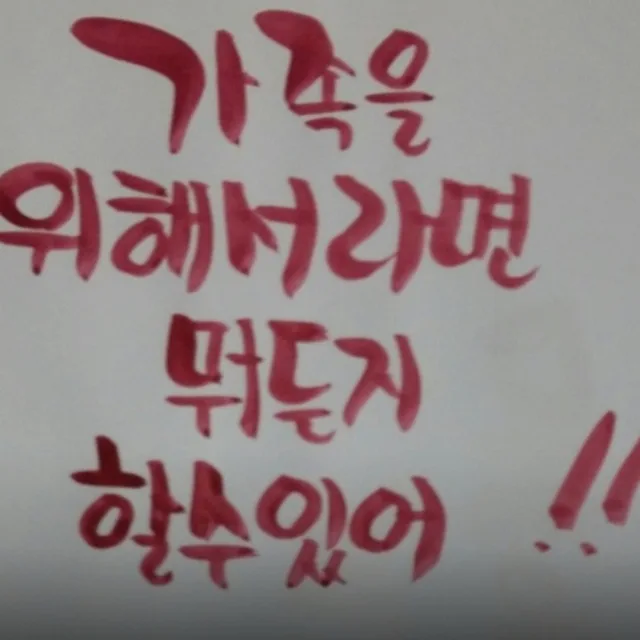 가족을
위해서라면
뭐든지
할수있어!!